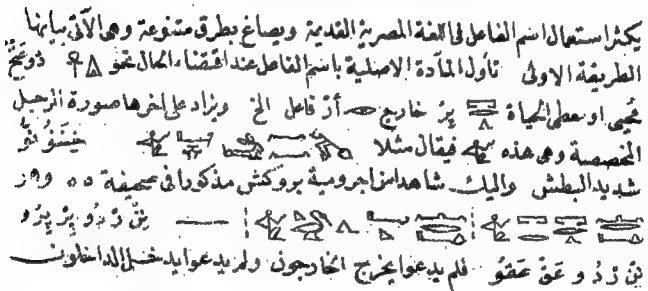 يكثر استعمال اسم الفاعل فى اللغة المصرية القديمة ويصاغ بطرق متنوعة وهى الآتى بيانها
الطريقة الاولى تأول المادة الاصلية باسم الفاعل عند اقتضاء الحال نحو
محيى او معطى الحياة پر خارج أر فاعل الخ ويزاد على آخرها صورة الرجل
المخصصة وهى هذه فيقال مثلا
شديد البطش واليك شاهدا من اجرومية بروكش مذكورا فى صحيفة ٥٥ وهو
پر پرو
عق عقو فلم يدعوا يخرج الخارجون ولم يدعوا يدخل الداخلون